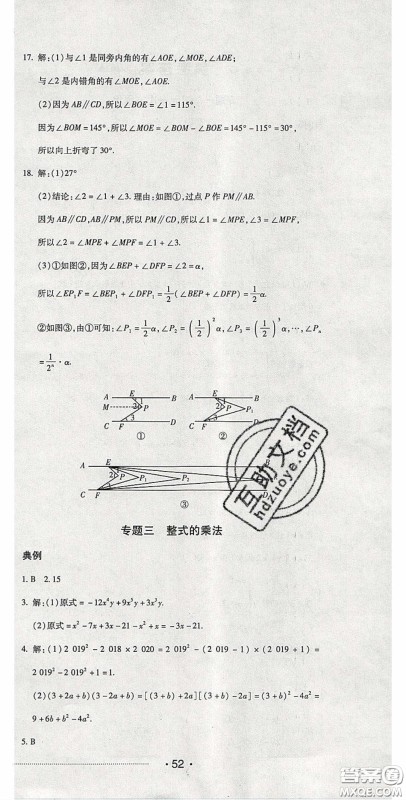 17. 解:(1)与∠1是同旁内角的有∠AOE,∠MOE,∠ADE;
与∠2是内错角的有∠MOE,∠AOE.
(2)因为AB∥CD,所以∠BOE=∠1=115°.
因为∠BOM=145°,所以∠MOE=∠BOM-∠BOE=145°-115°=30°,
所以向上折弯了30°.
18. 解:(1)27°
(2)结论:∠2=∠1+∠3. 理由:如图①,过点P作PM∥AB.
因为AB∥CD,AB∥PM,所以PM∥CD. 所以∠1=∠MPE,∠3=∠MPF.
所以∠2=∠MPE+∠MPF=∠1+∠3.
(3)①如图②,因为∠BEP+∠DFP=∠2=α,
所以∠EP₁F=∠BEP₁+∠DFP₁=1/2(∠BEP+∠DFP)=1/2α.
②如图③,由①可知:∠P₁=1/2α,∠P₂=(1/2)²α,∠P₃=(1/2)³α,…,∠Pₙ
=1/2ⁿ·α.
A E B M 1 2 P 3 C F D ①
A E B 1 2 P P₁ 3 C F D ②
A E P P₁ P₂ C F ③
专题三 整式的乘法
典例
1. B 2. 15
3. 解:(1)原式=-12x⁴y+9x³y+3x²y.
(2)原式=x²-7x+3x-21-x²+x=-3x-21.
4. 解:(1)2 019²-2 018×2 020=2 019²-(2 019-1)×(2 019+1)=
2 019²-2 019²+1=1.
(2)(3+2a+b)(3-2a+b)=[(3+b)+2a][(3+b)-2a]=(3+b)²-4a²=
9+6b+b²-4a².
5. B
· 52 ·
互助文档
hdzuoye.com
答案圈
MXQE.COM